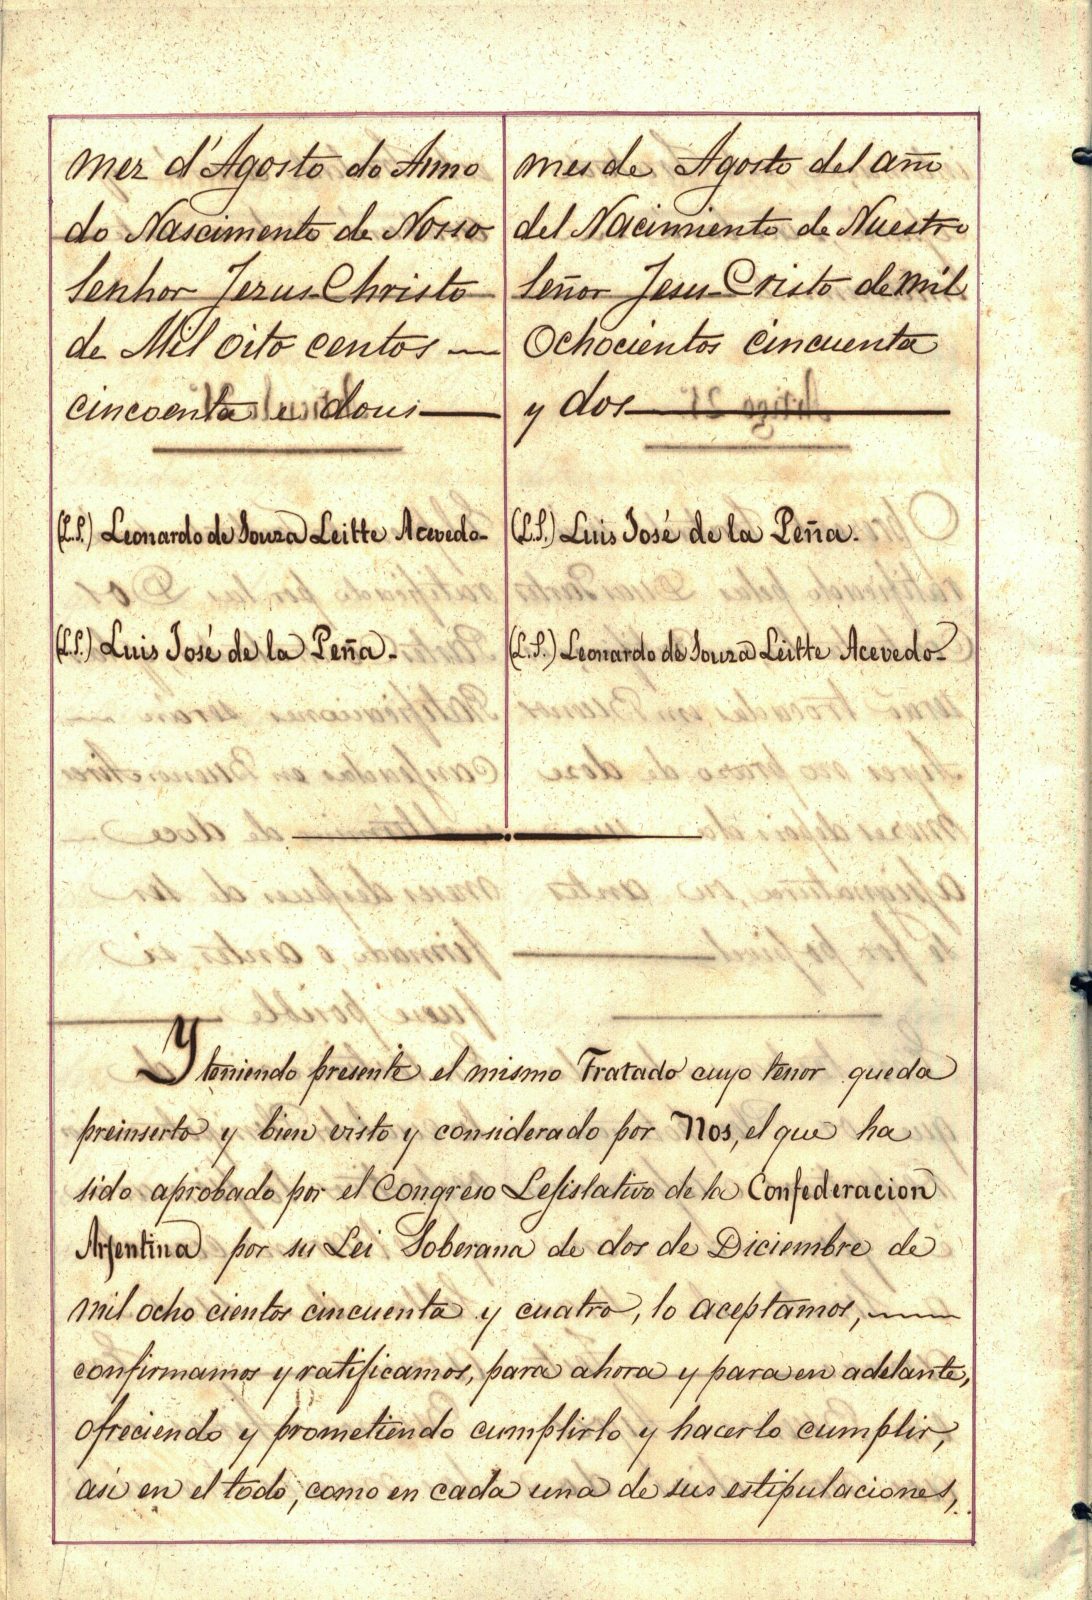 mez d'Agosto do Anno
do Nascimento de Nosso
Senhor Jezus-Christo
de Mil oito centos
cincoenta e dous
(L.S.) Leonardo de Souza Leitte Acevedo-
(L.S.) Luis José de la Peña-
mes de Agosto del año
del Nacimiento de Nuestro
Señor Jesu-Cristo de mil
Ochocientos cincuenta
y dos
(L.S.) Luis José de la Peña-
(L.S.) Leonardo de Souza Leitte Acevedo-
Y teniendo presente el mismo Tratado cuyo tenor queda
preinserto y bien visto y considerado por Nos, el que ha
sido aprobado por el Congreso Lejislativo de la Confederacion
Arjentina por su Lei Soberana de dos de Diciembre de
mil ocho cientos cincuenta y cuatro, lo aceptamos,
confirmamos y ratificamos, para ahora y para en adelante,
ofreciendo y prometiendo cumplirlo y hacerlo cumplir,
asi en el todo, como en cada una de sus estipulaciones,